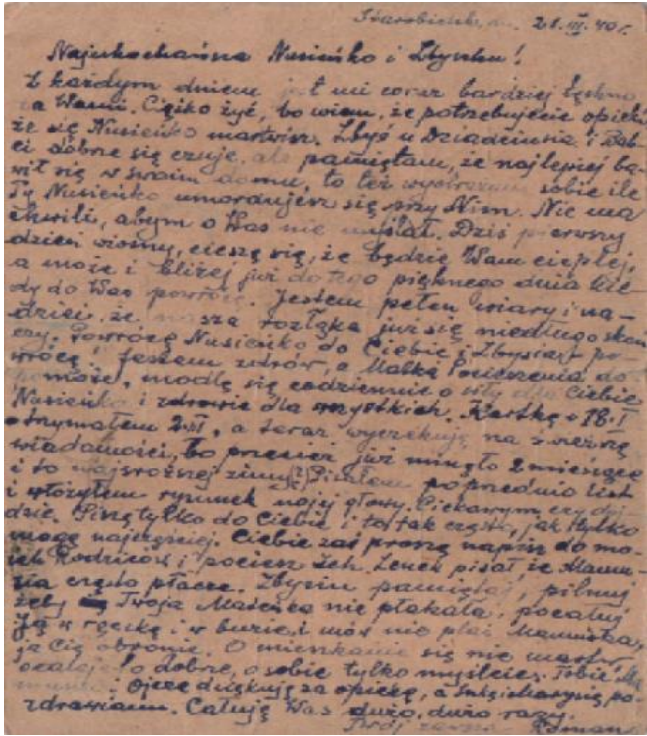 Starobielsk, dn. 21.III.40 r.
Najukochańsza Nusieńko i Zbyszku!
Z każdym dniem jest mi coraz bardziej tęskno
za Wami. Ciężko żyć, bo wiem, że potrzebujecie opieki
że się Nusieńko martwisz. Zbyś u Dziadziusia i Bab-
ci dobrze się czuje, ale pamiętam, że najlepiej ba-
wił się w swoim domu, to też wyobrażam sobie ile
Ty Nusieńko umordujesz się przy Nim. Nie ma
chwili, abym o Was nie myślał. Dziś pierwszy
dzień wiosny, cieszę się, że będzie Wam cieplej,
a może i bliżej już do tego pięknego dnia kie-
dy do Was powrócę. Jestem pełen wiary i na-
dziei, że nasza rozłąka już się niedługo skoń-
czy. Powrócę Nusieńko do Ciebie i Zbysia, po-
wrócę. Jestem zdrów, a Matka Pocieszenia do-
pomoże, modlę się codziennie o siły dla Ciebie
Nusieńko i zdrowie dla wszystkich. Kartkę z 18.I
otrzymałem, a teraz wyczekuję na świeżą
wiadomość, bo przecież już minęło 2 miesiące
i to najsroższej zimy. Pisałem poprzednio list
i włożyłem rysunek mojej głowy. Ciekawym czy doj-
dzie. Piszę tylko do Ciebie i to tak często, jak tylko
mogę najczęściej. Ciebie zaś proszę napisz do mo-
ich Rodziców i pociesz Ich. Lenek pisał, że Mamu-
sia często płacze. Zbysiu pamiętaj, pilnuj
żeby Twoja Mateńka nie płakała, pocałuj
Ją w rączkę i w buzię i mów nie płacz Mamusiu,
ja Cię obronię. O mieszkanie się nie martw
o dobre, o sobie tylko myślcie. Tobie
i Ojcze dziękuję za opiekę, a po-
zdrawiam. Całuję Was dużo, dużo razy.
Twój zawsze Roman